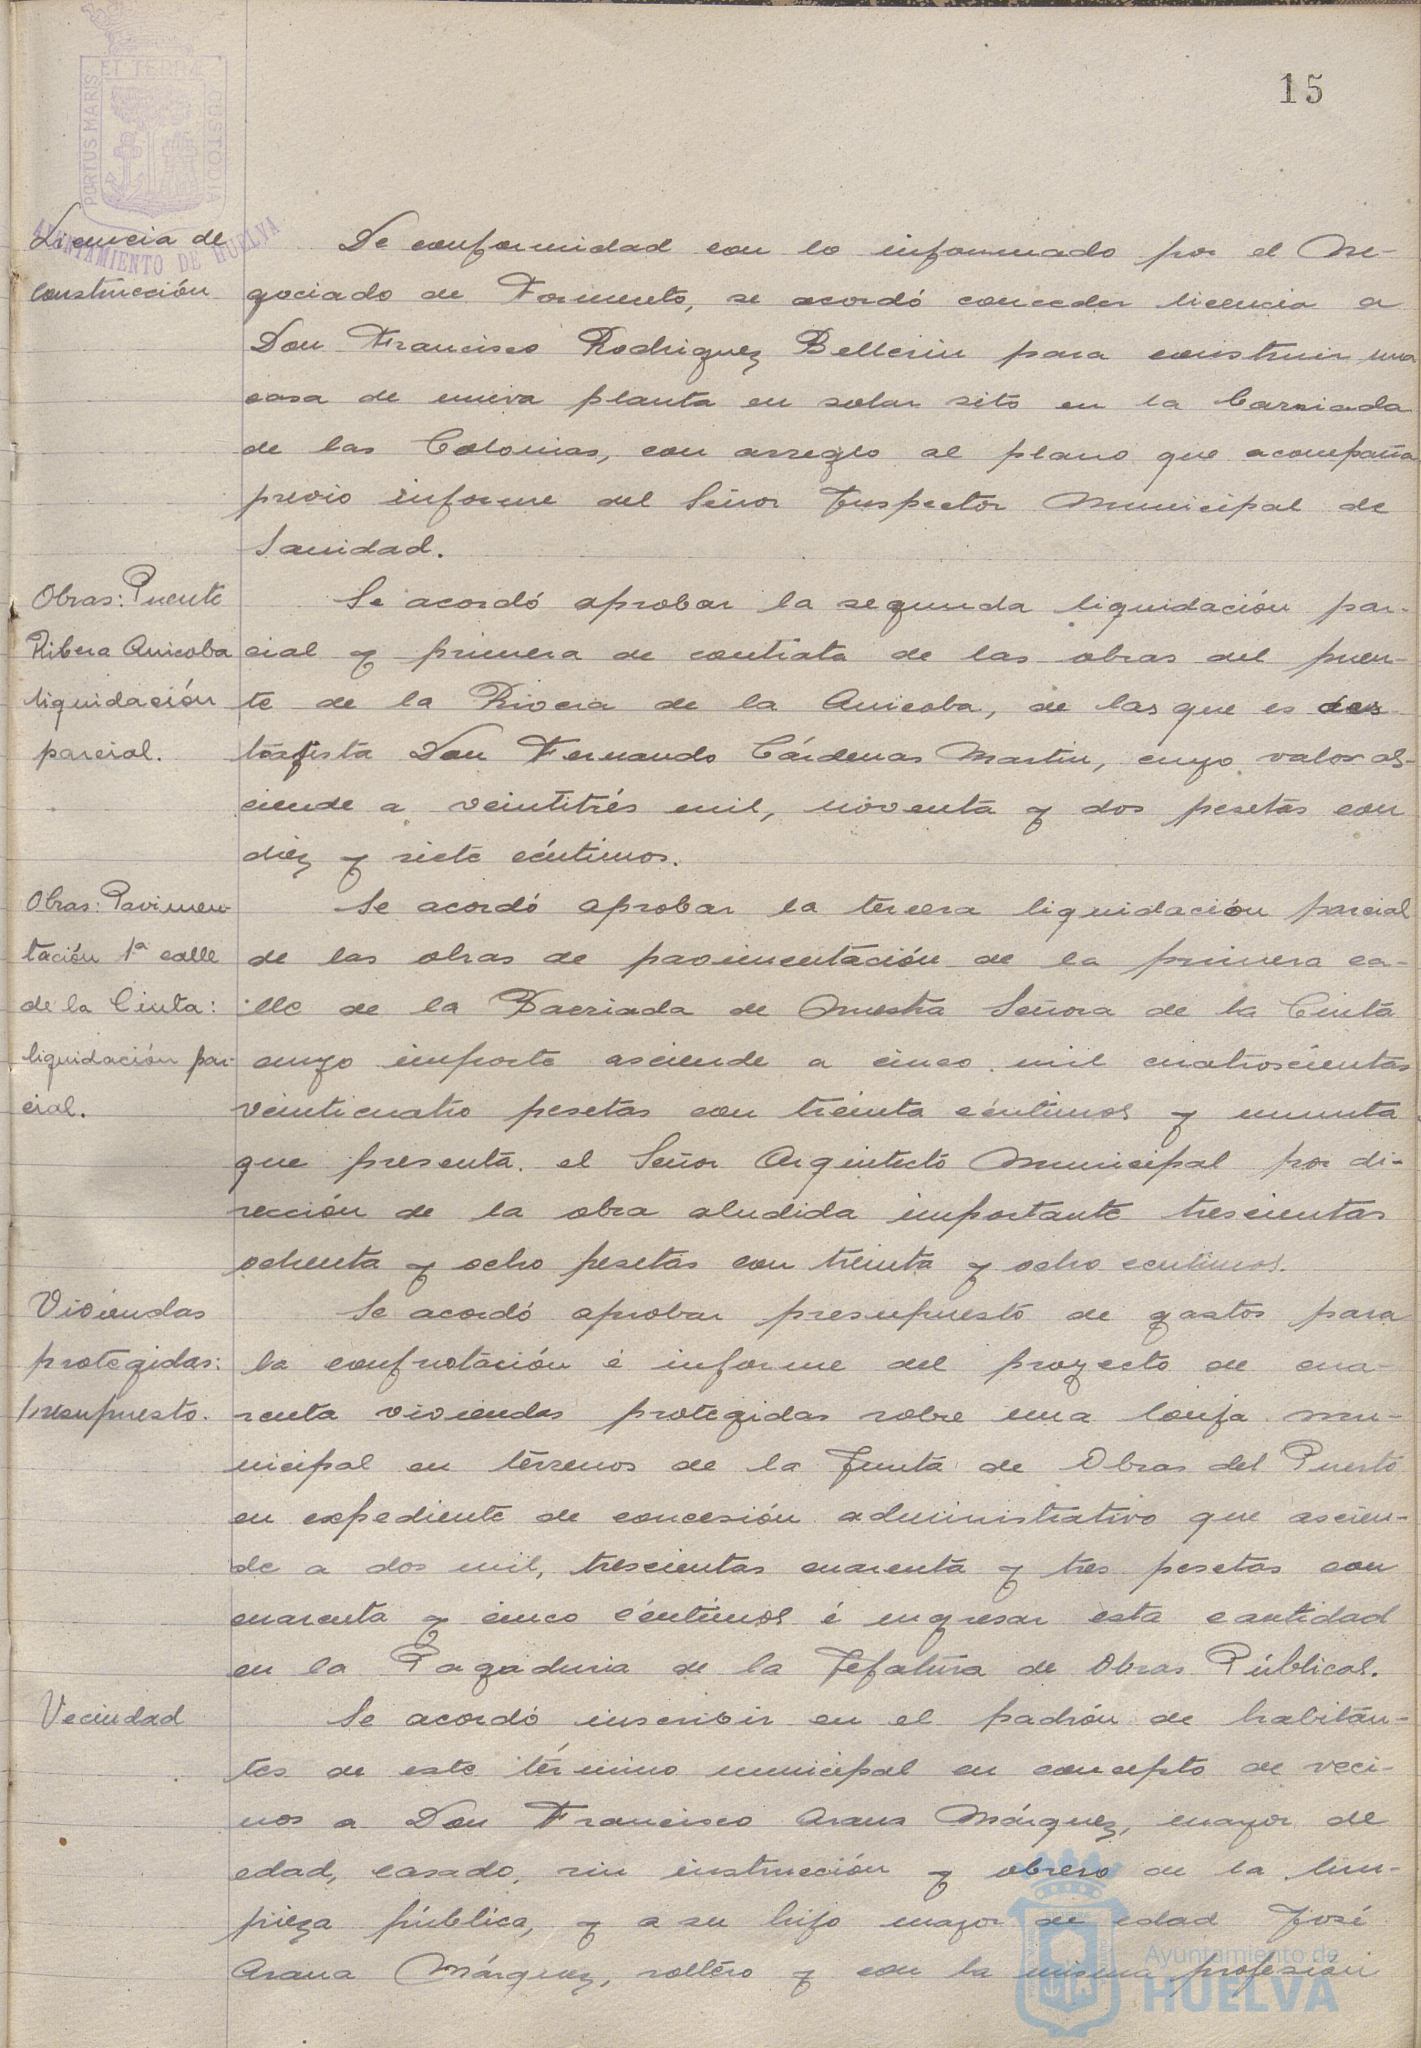 15
PORTUS MARIS ET TERRÆ CUSTODIA
AYUNTAMIENTO DE HUELVA
Licencia de
construcción
De conformidad con lo informado por el Ne-
gociado de Fomento, se acordó conceder licencia a
Don Francisco Rodriguez Bellerin para construir una
casa de nueva planta en solar sito en la barriada
de las Colonias, con arreglo al plano que acompaña
previo informe del Señor Inspector Municipal de
Sanidad.
Obras: Puente
Ribera Anicoba
liquidación
parcial.
Se acordó aprobar la segunda liquidación par-
cial y primera de contrata de las obras del puen-
te de la Rivera de la Anicoba, de las que es des
tajista Don Fernando Cárdenas Martin, cuyo valor as-
ciende a veintitrés mil, noventa y dos pesetas con
diez y siete céntimos.
Obras: Pavimen-
tación 1ª calle
de la Cinta:
liquidación par-
cial.
Se acordó aprobar la tercera liquidación parcial
de las obras de pavimentación de la primera ca-
lle de la Barriada de Nuestra Señora de la Cinta
cuyo importe asciende a cinco mil cuatroscientas
veinticuatro pesetas con treinta céntimos y minuta
que presenta el Señor Arquitecto Municipal por di-
rección de la obra aludida importante trescientas
ochenta y ocho pesetas con treinta y ocho centimos.
Viviendas
protegidas:
presupuesto.
Se acordó aprobar presupuesto de gastos para
la confrotación é informe del proyecto de cua-
renta viviendas protegidas sobre una lonja mu-
nicipal en terrenos de la Junta de Obras del Puerto
en expediente de concesión administrativo que ascien-
de a dos mil, trescientas cuarenta y tres pesetas con
cuarenta y cinco céntimos é ingresar esta cantidad
en la Pagaduria de la Jefatura de Obras Públicas.
Vecindad
Se acordó inscribir en el padrón de habitan-
tes de este término municipal en concepto de veci-
nos a Don Francisco Arana Márquez, mayor de
edad, casado, sin instrucción y obrero de la lim-
pieza pública, y a su hijo mayor de edad José
Arana Márquez, soltero y con la misma profesión
Ayuntamiento de
HUELVA